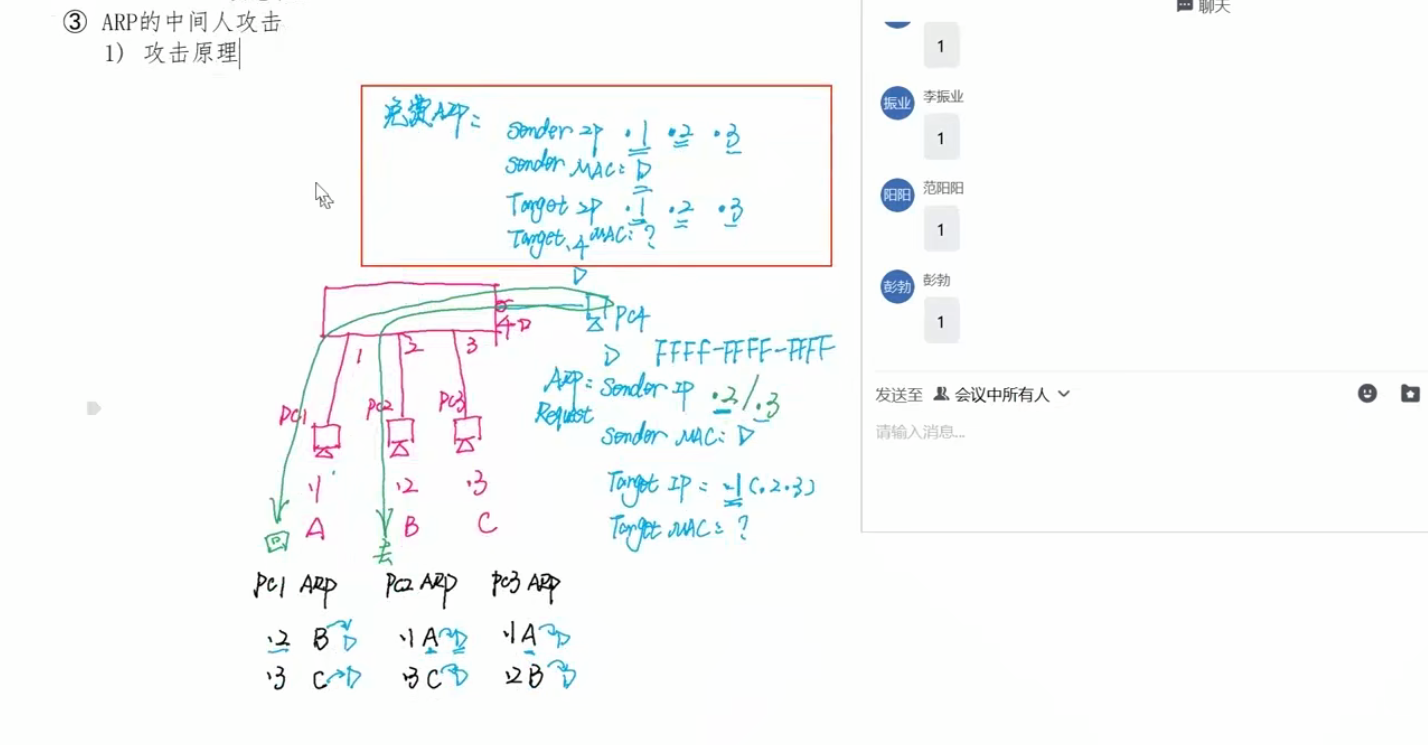 ③ ARP的中间人攻击
1) 攻击原理
免费ARP:
Sender IP .1 .2 .3
Sender MAC: D
Target IP .1 .2 .3
Target MAC: ?
.4
D
PC4
4 D
1 2 3
PC1 PC2 PC3
.1 .2 .3
A B C
回 去
D FFFF-FFFF-FFFF
ARP: Sender IP .2/.3
Request
Sender MAC: D
Target IP = .1(.2.3)
Target MAC: ?
PC1 ARP PC2 ARP PC3 ARP
.2 B→D .1 A→D .1 A→D
.3 C→D .3 C→D .2 B→D
聊天
1
振业 李振业
1
阳阳 范阳阳
1
彭勃 彭勃
1
发送至 会议中所有人
请输入消息...